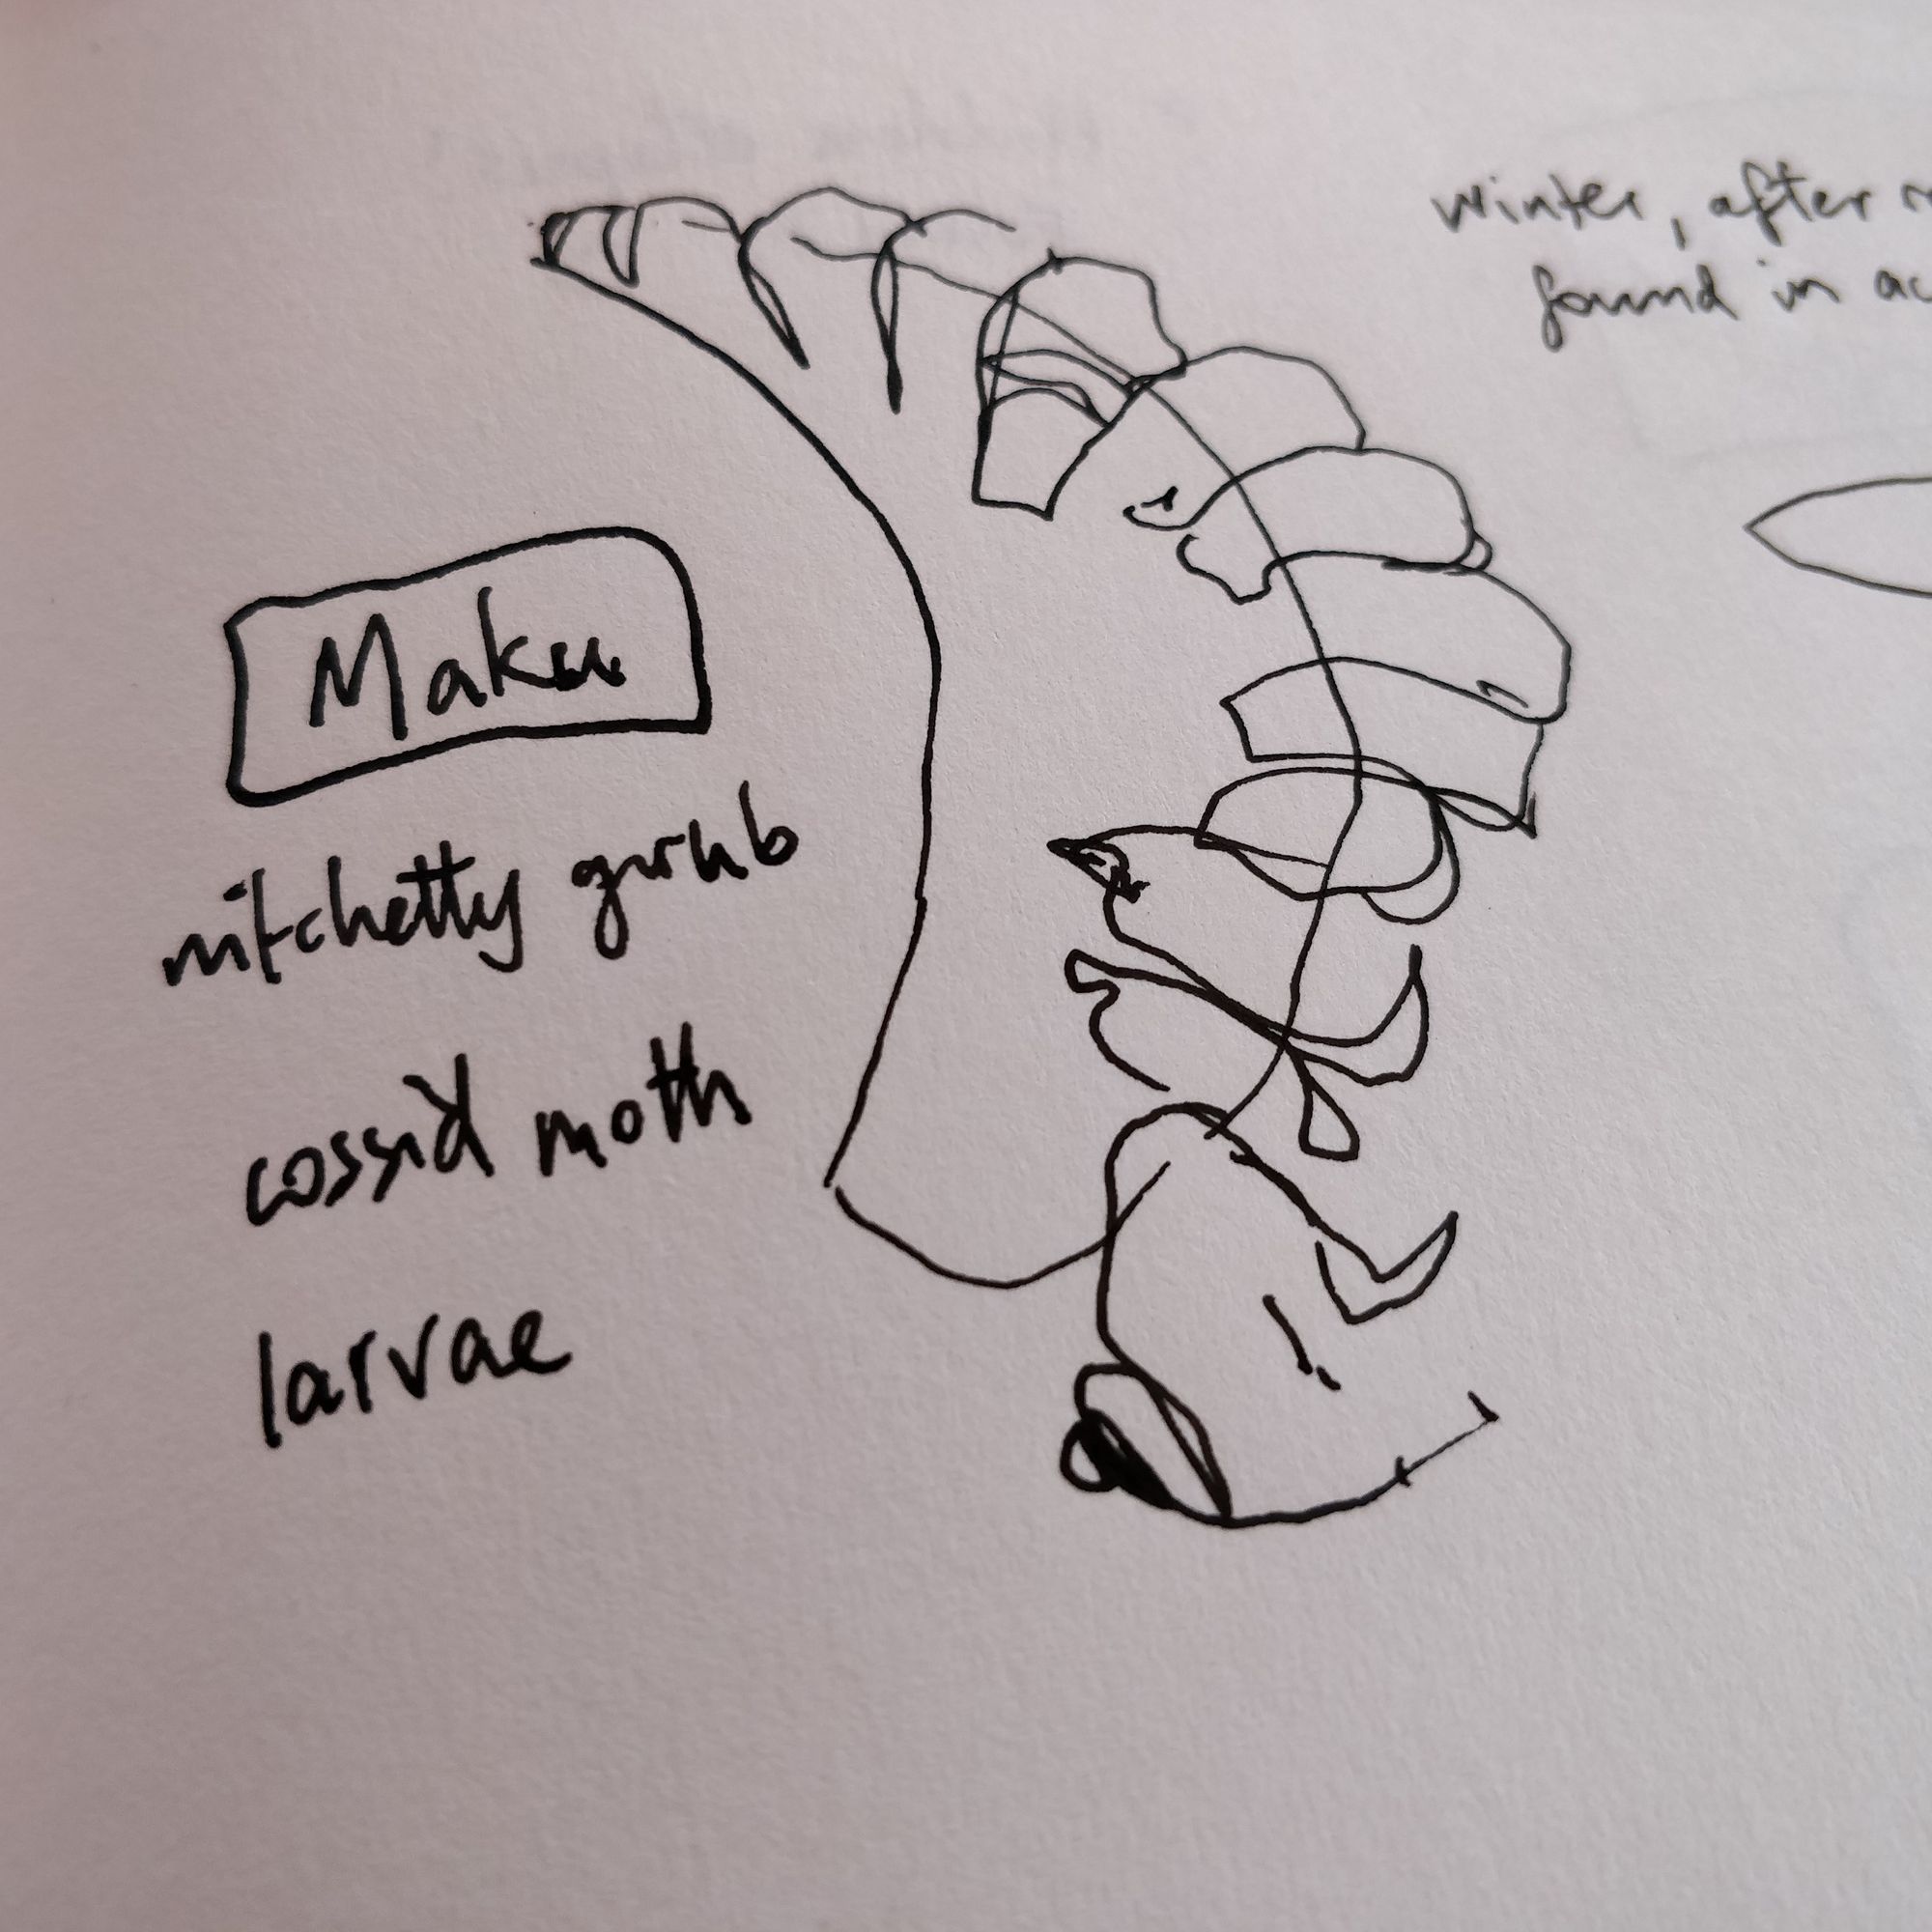 winter, after
found in
Maku
witchetty grub
cossid moth
larvae